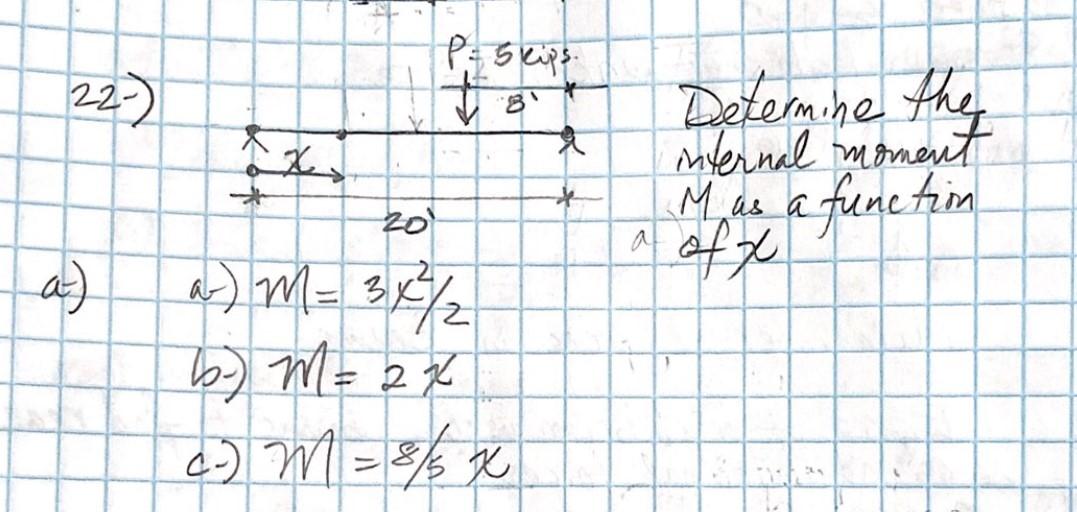 P = 5 kips.
22-)
8'
Determine the
internal moment
M as a function
of x
x
20'
a-)
a-) M = 3x²/2
b-) M = 2x
c-) M = 8/5 x